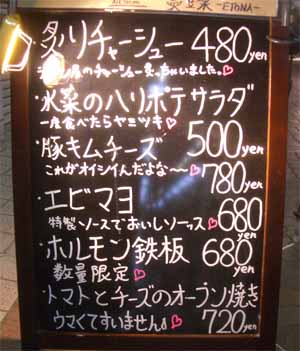 -ETONA-
炙りチャーシュー 480yen
のチャーシュー炙っちゃいました。♡
・水菜のハリポテサラダ
一度食べたらヤミツキ♡ 500yen
・豚キムチーズ
これがオイシイんだよな〜♡ 780yen
・エビマヨ
特製ソースでおいしソーッス♡ 680yen
・ホルモン鉄板 680yen
数量限定♡
・トマトとチーズのオーブン焼き
ウマくてすいません♡ 720yen